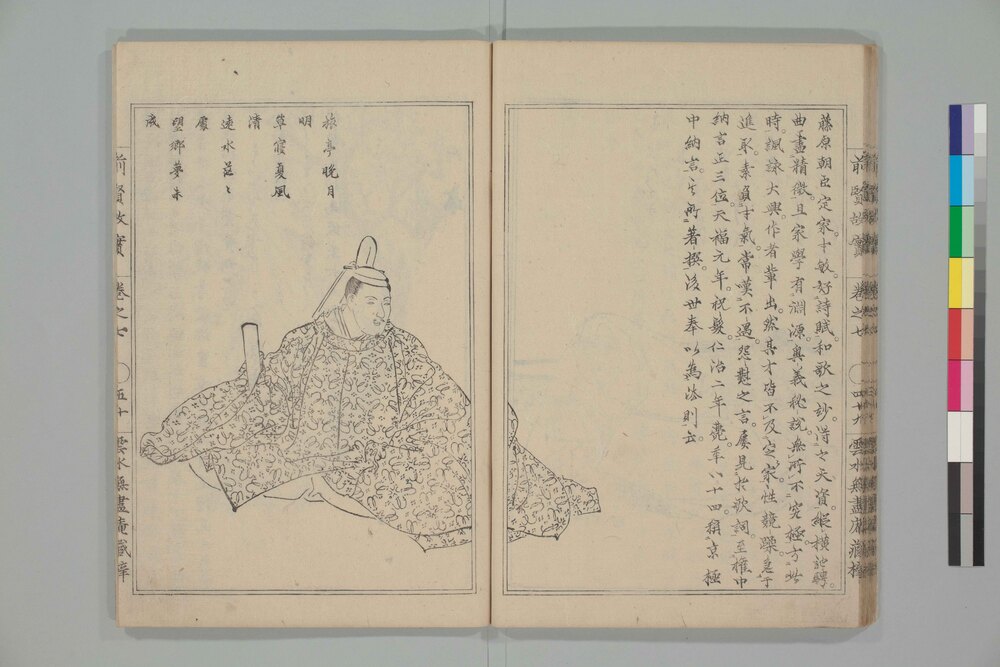 藤原朝臣定家。才敏。好詩賦。和歌之妙。得之天資。縱橫馳騁。
曲盡精微。且家學有淵源。奧義秘説。無所不究極。方此
時。諷詠大興。作者輩出。然其才皆不及定家。性競躁。急于
進取。素負才氣。常嘆不遇。怨懟之言。屡見於歌詞。至權中
納言正三位。天福元年。祝髮。仁治二年薨。年八十四。稱京極
中納言。其所著撰。後世奉以為法則云
前賢故實
卷之七
四十九
雲水無盡庵藏梓
旅亭晩月
明
草寢夏風
清
遠水茫々
處
望鄉夢未
成
前賢故實
卷之七
五十
雲水無盡庵藏